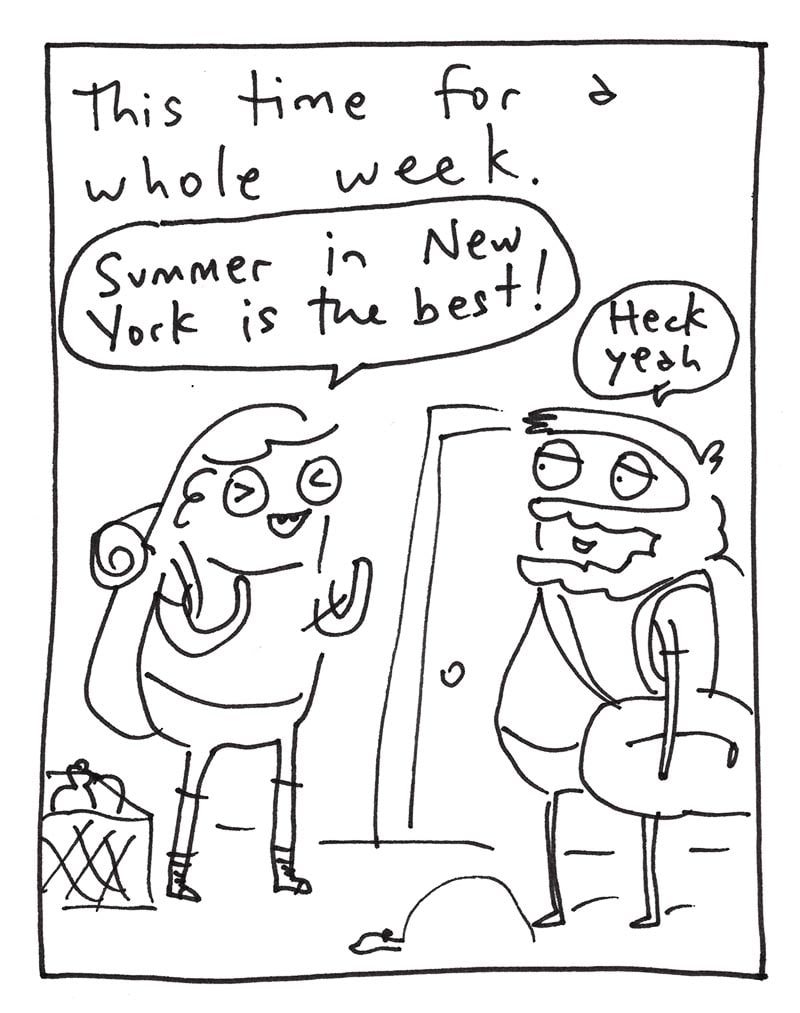 This time for a
whole week.
Summer in New
York is the best!
Heck
yeah